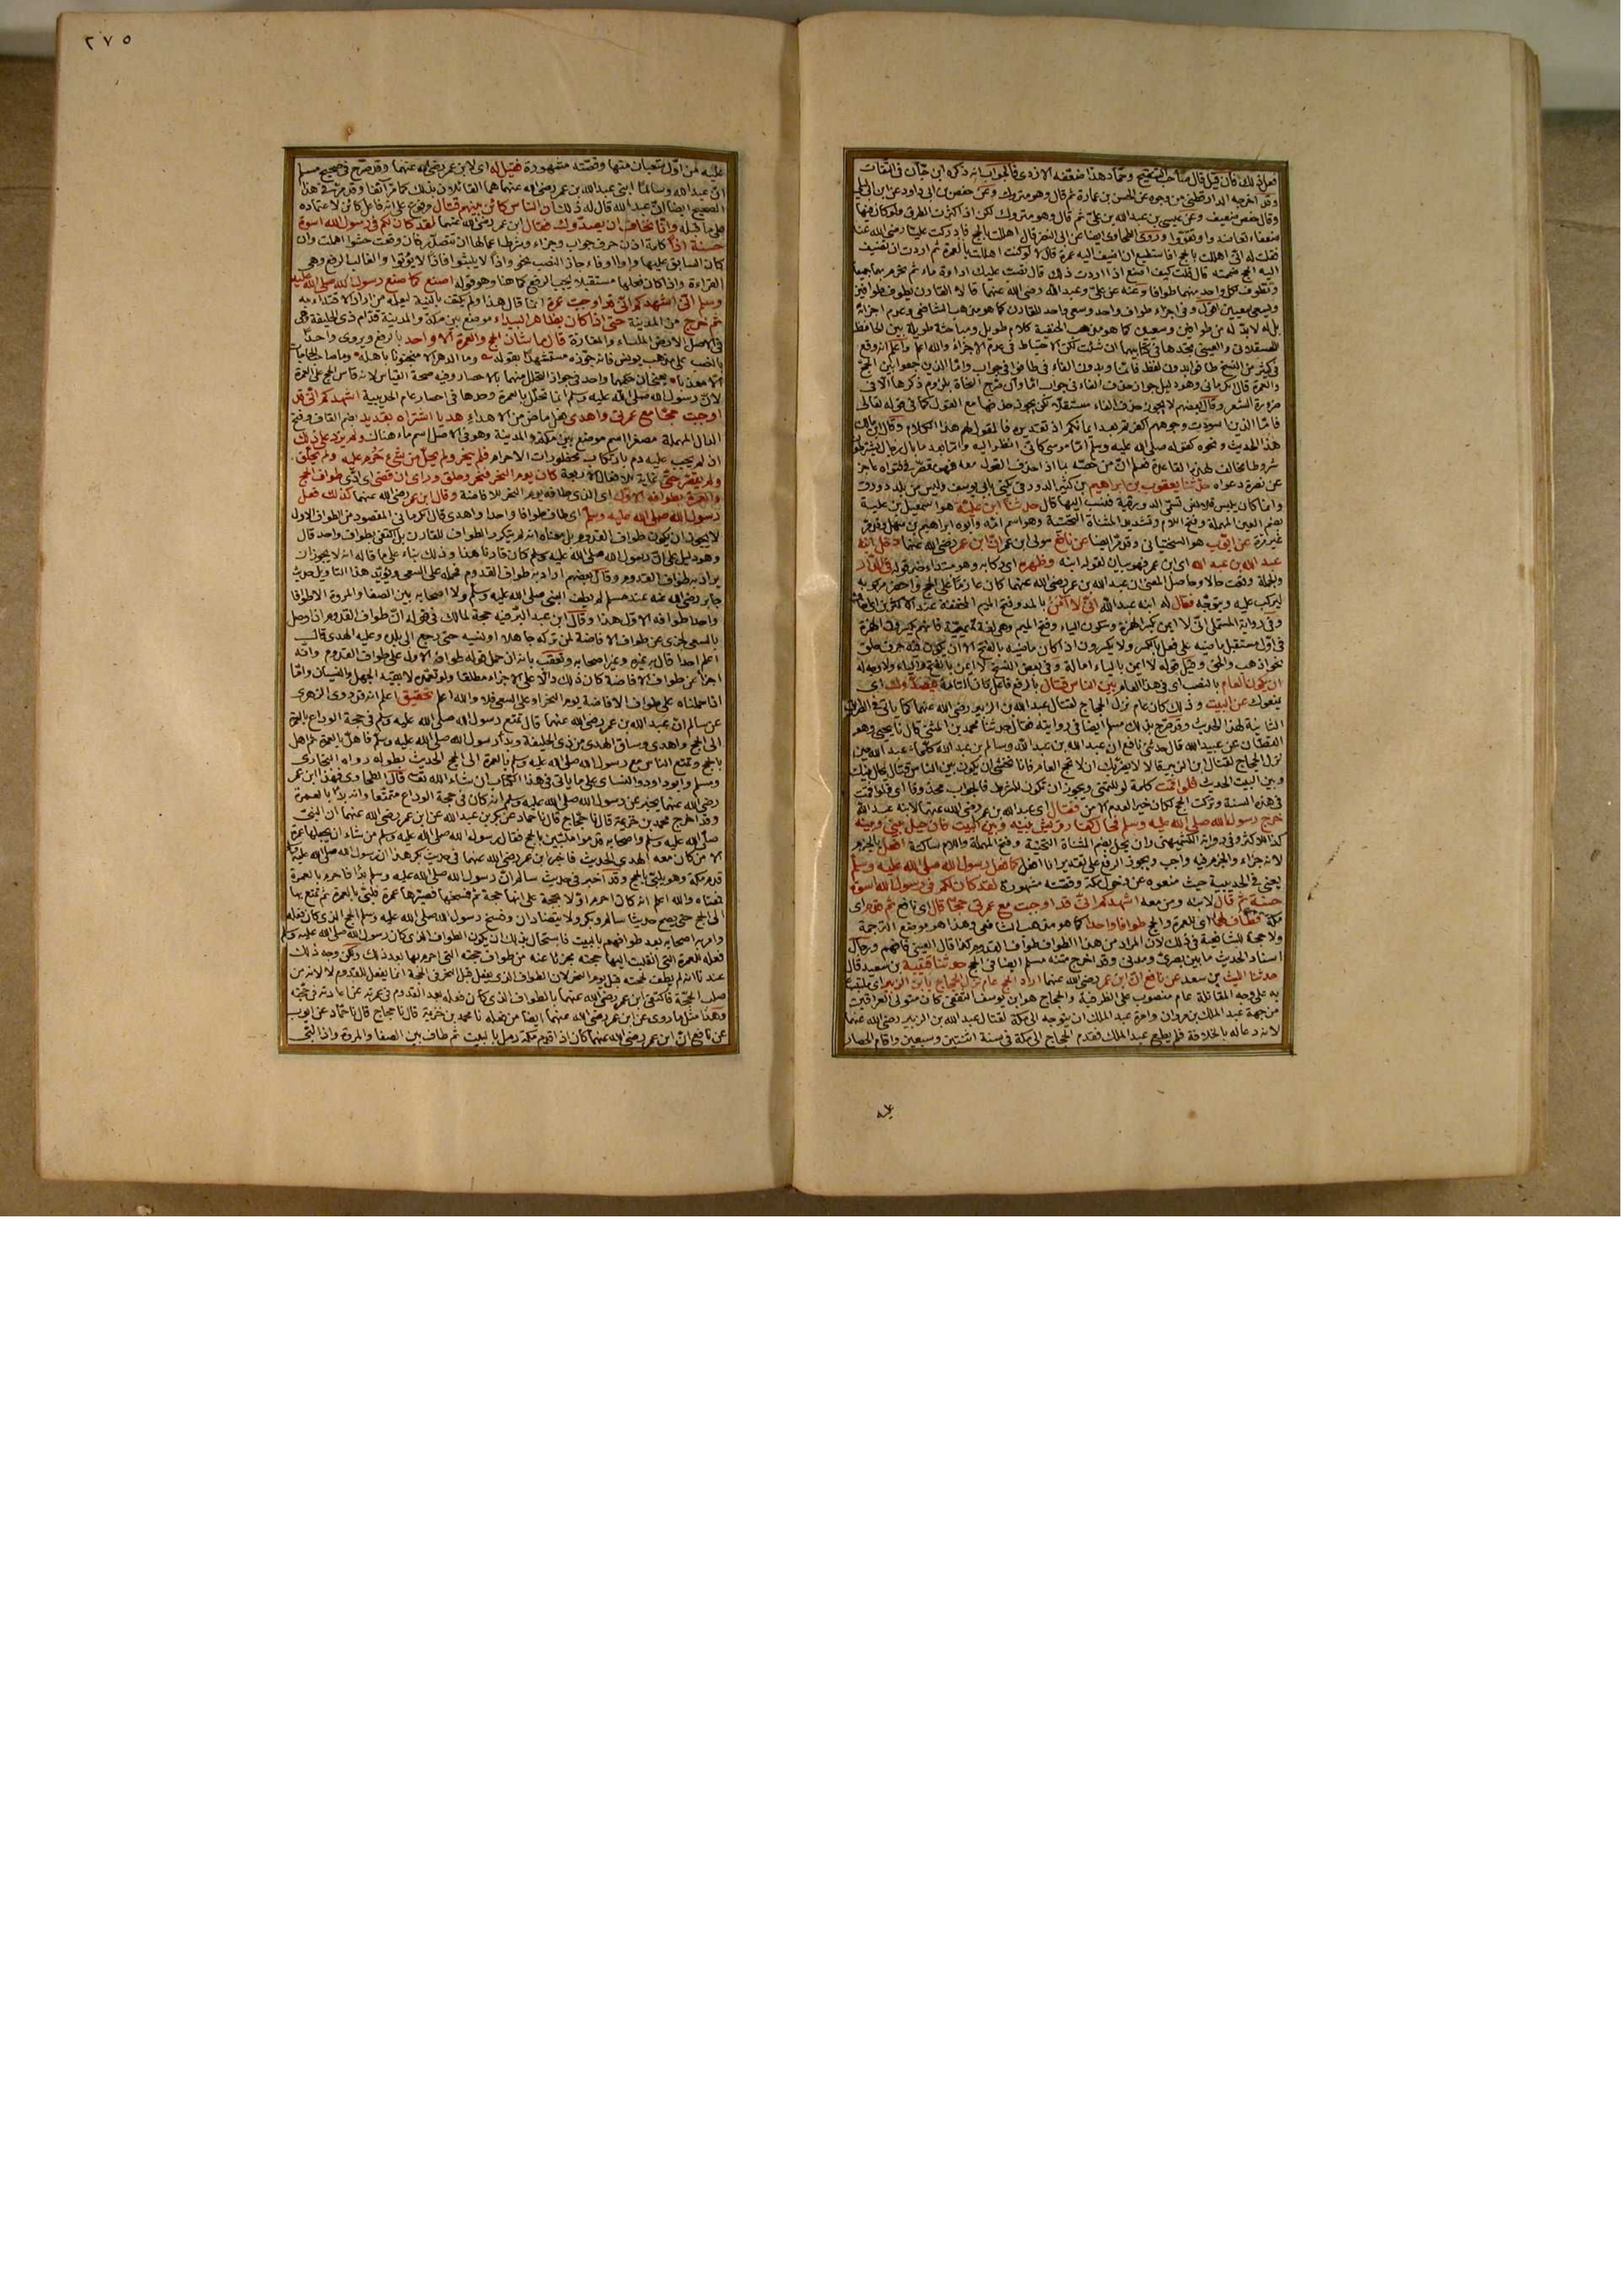 فعل ذلك فان قيل قال صاحب التنقيح وحماد هذا ضعفه الازدي فالجواب انه ذكره ابن حبان في الثقات
وقد اخرجه الدارقطني من وجوه عن الحسن بن عمارة ثم قال وهو متروك وعن حفص بن ابي داود عن ابن ابي ليلى
وقال حفص ضعيف وعن عيسى بن عبد الله بن علي ثم قال وهو متروك لكن اذا كثرت الطرق ولو كان فيها
ضعفاء تعاضدوا وتقووا وروى الطحاوي ايضا عن ابي النضر قال اهللت بالحج فادركت عليا رضي الله عنه
فقلت له اني اهللت بالحج افاستطيع ان اضيف اليه عمرة قال لا لو كنت اهللت بالعمرة ثم اردت ان تضيف
اليه الحج ضممته قال قلت كيف اصنع اذا اردت ذلك قال تصب عليك اداوة ماء ثم تحرم بهما جميعا
وتطوف لكل واحد منهما طوافا وعنه عن علي وعبد الله رضي الله عنهما قالا القارن يطوف طوافين
ويسعى سعيين اقول وفي اجزاء طواف واحد وسعي واحد للقارن كما هو مذهب الشافعي وعدم اجزائه
بل له لابد له من طوافين وسعيين كما هو مذهب الحنفية كلام طويل ومباحثة طويلة بين الحافظ
العسقلاني والعيني تجدها في كتابيهما ان شئت لكن الاحتياط في عدم الاجزاء والله اعلم واعلم انه وقع
في كثير من النسخ طافوا بدون لفظ فانما وبدون الفاء في طافوا في جواب واما الذين جمعوا بين الحج
والعمرة قال الكرماني وهو دليل جواز حذف الفاء في جواب اما وان صرح النحاة بلزوم ذكرها الا في
ضرورة الشعر وقال بعضهم لا يجوز حذف الفاء مستقلا لكن يجوز حذفها مع القول كما في قوله تعالى
فاما الذين اسودت وجوههم اكفرتم بعد ايمانكم اذ تقديره فالمقول لهم هذا الكلام وقال ابن مالك
هذا الحديث ونحوه كقوله صلى الله عليه وسلم اما موسى كاني انظر اليه واما بعد ما بال رجال يشترطون
شروطا مخالف لهذه القاعدة فعلم ان من خصه بما اذا حذف القول معه فهو مقصر في فتواه عاجز
عن نصرة دعواه حدثنا يعقوب بن ابراهيم بن كثير الدورقي يكنى بابي يوسف وليس من بلد دورق
وانما كان يلبس قلانس تسمى الدورقية فنسب اليها قال حدثنا ابن علية هو اسمعيل بن علية
بضم العين المهملة وفتح اللام وتشديد المثناة التحتية وهو اسم امه وابوه ابراهيم بن سهل وقد مر
غير مرة عن ايوب هو السختياني وقد مر ايضا عن نافع مولى ابن عمر ان ابن عمر رضي الله عنهما دخل ابنه
عبد الله بن عبد الله اي ابن عمر فهو بيان لقوله ابنه وظهره اي ركابه وهو مبتداء خبره قوله في الدار
والجملة وقعت حالا وحاصل المعنى ان عبد الله بن عمر رضي الله عنهما كان عازما على الحج واحضر مركوبه
ليركب عليه ويتوجه فقال له ابنه عبد الله اني لا آمن بالمد وفتح الميم المخففة عند الاكثرين
وفي رواية المستملي اني لا ايمن بكسر الهمزة وسكون الياء وفتح الميم وهي لغة تميمية فانهم يكسرون الهمزة
في اول مستقبل ماضيه على فعل بالكسر ولا يكسرون اذا كان ماضيه بالفتح الا ان يكون فيه حرف حلق
نحو اذهب والحق وقيل قوله لا ايمن بالياء امالة وفي بعض النسخ لا ايمن بالفتح والياء ولا وجه له
ان يكون العام بالنصب اي في هذا العام بين الناس قتال بالرفع فاعل كان التامة فيصدوك اي
يمنعوك عن البيت وذلك كان عام نزل الحجاج لقتال عبد الله بن الزبير رضي الله عنهما كما ياتي في الطريق
الثانية لهذا الحديث وقد صرح بذلك مسلم ايضا في روايته فقال حدثنا محمد بن المثنى قال نا يحيى وهو
القطان عن عبيد الله قال حدثني نافع ان عبد الله بن عبد الله وسالم بن عبد الله كلما عبد الله حين
نزل الحجاج لقتال ابن الزبير قالا لا يضرك ان لا تحج العام فانا نخشى ان يكون بين الناس قتال يحال بينك
وبين البيت الحديث فلو اقمت كلمة لو للتمني ويجوز ان تكون للشرط فالجواب محذوف اي فلو اقمت
في هذه السنة وتركت الحج لكان خيرا لعدم الامن فقال اي عبد الله بن عمر رضي الله عنهما لابنه عبد الله
خرج رسول الله صلى الله عليه وسلم فحال كفار قريش بينه وبين البيت فان حيل بيني وبينه
كذا للاكثر وفي رواية الكشميهني وان يحل بضم المثناة التحتية وفتح المهملة واللام ساكنة افعل بالجزم
لانه جزاء والجزم فيه واجب ويجوز الرفع على تقدير انا افعل كما فعل رسول الله صلى الله عليه وسلم
يعني في الحديبية حيث منعوه عن دخول مكة وقصته مشهورة لقد كان لكم في رسول الله اسوة
حسنة ثم قال لابنه ومن معه اشهدكم اني قد اوجبت مع عمرتي حجا قال اي نافع ثم قدم اي
مكة فطاف لهما اي للعمرة والحج طوافا واحدا كما هو مذهب الشافعي وهذا هو موضع الترجمة
ولا حجة للشافعية في ذلك لان المراد من هذا الطواف طواف القدوم كذا قال العيني فافهم ورجال
اسناد الحديث ما بين بصري ومدني وقد اخرج متنه مسلم ايضا في الحج حدثنا قتيبة بن سعيد قال
حدثنا الليث بن سعد عن نافع ان ابن عمر رضي الله عنهما اراد الحج عام نزل الحجاج بابن الزبير اي ملتبسا
به على وجه المقاتلة عام منصوب على الظرفية والحجاج هو ابن يوسف الثقفي كان متولي العراقين
من جهة عبد الملك بن مروان وامره عبد الملك ان يتوجه الى مكة لقتال عبد الله بن الزبير رضي الله عنهما
لانه دعا له بالخلافة فلم يطع عبد الملك فقدم الحجاج الى مكة في سنة اثنتين وسبعين واقام الحصار
عليه
٢٧٥
عليه من اول شعبان منها وقصته مشهورة فقيل له اي لابن عمر رضي الله عنهما وقد صرح في صحيح مسلم
ان عبد الله وسالما ابني عبد الله بن عمر رضي الله عنهما هما القائلون بذلك كما مر آنفا وقد مر في هذا
الصحيح ايضا ان عبد الله قال له ذلك ان الناس كائن بينهم قتال وقوع على انه فاعل كائن لاعتماده
على ما قبله وانا نخاف ان يصدوك فقال ابن عمر رضي الله عنهما لقد كان لكم في رسول الله اسوة
حسنة اذا كلمة اذن حرف جواب وجزاء وشرط اعمالها ان تتصدر فان وقعت حشوا اهملت وان
كان السابق عليها واوا او فاء جاز النصب نحو واذا لا يلبثوا فاذا لا يؤتوا والغالب الرفع وهي
القراءة واذا كان فعلها مستقبلا يجب الرفع كما هنا وهو قوله اصنع كما صنع رسول الله صلى الله عليه
وسلم اني اشهدكم اني قد اوجبت عمرة انما قال هذا ولم يكتف بالنية ليعلم من اراد الاقتداء به
ثم خرج من المدينة حتى اذا كان بظاهر البيداء موضع بين مكة والمدينة قدام ذي الحليفة وهي
في الاصل الارض الملساء والمفازة قال ما شان الحج والعمرة الا واحد بالرفع ويروى واحدا
بالنصب على مذهب يونس فانه جوزه مستشهدا بقوله وما الدهر الا منجنونا باهله وما صاحب الحاجات
الا معذبا يعني ان حكمهما واحد في جواز التحلل منهما بالاحصار وفيه صحة القياس لانه قاس الحج على العمرة
لان رسول الله صلى الله عليه وسلم انما تحلل بالعمرة وحدها في احصار عام الحديبية اشهدكم اني قد
اوجبت حجا مع عمرتي واهدى فعل ماض من الاهداء هديا اشتراه بقديد بضم القاف وفتح
الدال المهملة مصغرا اسم موضع بين مكة والمدينة وهو في الاصل اسم ماء هناك ولم يزد على ذلك
اذ لم يجب عليه دم بارتكاب محظورات الاحرام فلم ينحر ولم يحل من شيء حرم عليه ولم يحلق
ولم يقصر حتى غاية للافعال الاربعة كان يوم النحر فنحر وحلق وراى ان قضى اي ادى طواف الحج
والعمرة بطوافه الاول اي الذي طافه يوم النحر للافاضة وقال ابن عمر رضي الله عنهما كذلك فعل
رسول الله صلى الله عليه وسلم اي طاف طوافا واحدا واهدى قال الكرماني المقصود من الطواف الاول
لا يجوز ان يكون طواف القدوم بل معناه انه لم يتكرر الطواف للقارن بل اكتفى بطواف واحد قال
وهو دليل على ان رسول الله صلى الله عليه وسلم كان قارنا هذا وذلك بناء على ما قاله انه لا يجوز ان
يراد به طواف القدوم وقال بعضهم اراد به طواف القدوم فحمله على السعي ويؤيد هذا التاويل حديث
جابر رضي الله عنه عند مسلم لم يطف النبي صلى الله عليه وسلم ولا اصحابه بين الصفا والمروة الا طوافا
واحدا طوافه الاول هذا وقال ابن عبد البر فيه حجة لمالك في قوله ان طواف القدوم اذا وصل
بالسعي يجزئ عن طواف الافاضة لمن تركه جاهلا او نسيه حتى رجع الى بلده وعليه الهدي قال
اعلم احدا قال به غيره وغير اصحابه وتعقب بانه ان حمل قوله طوافه الاول على طواف القدوم وانه
اجزا عن طواف الافاضة كان ذلك دالا على الاجزاء مطلقا ولو تعمده لا بقيد الجهل والنسيان واما
اذا حملناه على طواف الافاضة يوم النحر او على السعي فلا والله اعلم تحقيق اعلم انه قد روى الزهري
عن سالم ان عبد الله بن عمر رضي الله عنهما قال تمتع رسول الله صلى الله عليه وسلم في حجة الوداع بالعمرة
الى الحج واهدى وساق الهدي من ذي الحليفة وبدا رسول الله صلى الله عليه وسلم فاهل بالعمرة ثم اهل
بالحج وتمتع الناس مع رسول الله صلى الله عليه وسلم بالعمرة الى الحج الحديث بطوله رواه البخاري
ومسلم وابو داود والنسائي على ما ياتي في هذا الكتاب ان شاء الله تعالى قال الطحاوي فهذا ابن عمر
رضي الله عنهما يخبر عن رسول الله صلى الله عليه وسلم انه كان في حجة الوداع متمتعا وانه بدا بالعمرة
وقد اخرج محمد بن خزيمة قال نا حجاج قال نا حماد عن بكر بن عبد الله عن ابن عمر رضي الله عنهما ان النبي
صلى الله عليه وسلم واصحابه قدموا ملبين بالحج فقال رسول الله صلى الله عليه وسلم من شاء ان يجعلها عمرة
الا من كان معه الهدي الحديث فاخبر ابن عمر رضي الله عنهما في حديث بكر هذا ان رسول الله صلى الله عليه وسلم
قدم مكة وهو يلبي بالحج وقد اخبر في حديث سالم ان رسول الله صلى الله عليه وسلم بدا فاحرم بالعمرة
فمعناه والله اعلم انه كان احرم اولا بحجة على انها حجة ثم فسخها فصيرها عمرة فلبى بالعمرة ثم تمتع بها
الى الحج حتى يصح حديثا سالم وبكر ولا يتضادان وفسخ رسول الله صلى الله عليه وسلم الحج الذي كان فعله
وامر به اصحابه بعد طوافهم بالبيت فاستحال بذلك ان يكون الطواف الذي كان رسول الله صلى الله عليه وسلم
فعله للعمرة التي انقلبت اليها حجته مجزئا عنه من طواف حجته التي احرم بها بعد ذلك ولكن وجه ذلك
عندنا انه لم يطف لحجته قبل يوم النحر لان الطواف الذي يفعل قبل النحر في الحجة انما يفعل للقدوم لا لانه من
صلب الحجة فاكتفى ابن عمر رضي الله عنهما بالطواف الذي كان فعله بعد القدوم في عمرته عن اعادته في حجته
وهذا مثل ما روى عن ابن عمر رضي الله عنهما ايضا من فعله نا محمد بن خزيمة قال نا حجاج قال نا حماد عن ايوب
عن نافع ان ابن عمر رضي الله عنهما كان اذا قدم مكة رمل بالبيت ثم طاف بين الصفا والمروة واذا لبى